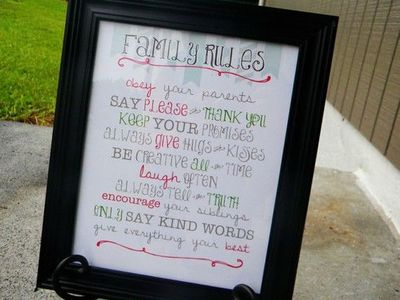 FAMILY RULES
obey your parents
SAY PLEASE and THANK YOU
KEEP YOUR PROMISES
ALWAYS GIVE HUGS and KISSES
BE CREATIVE all the TIME
laugh OFTEN
ALWAYS TELL the TRUTH
encourage your siblings
ONLY SAY KIND WORDS
give everything your best